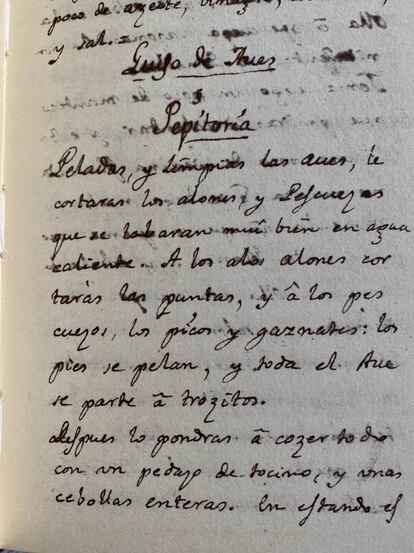 poco de azeyte, vinagre,
y sal.
Guiso de Aves
Pepitoria
Peladas, y limpias las aves, le
cortaras los alones, y Pescuezos
que se labaran muỹ bien en agua
caliente. A los alos alones cor
tarás las puntas, y â los pes
cuezos, los picos y gaznates: los
pies se pelan, y toda el Ave
se parte â trozitos.
Despues lo pondras â cozer todo
con un pedazo de tocino, y unas
cebollas enteras. En estando es